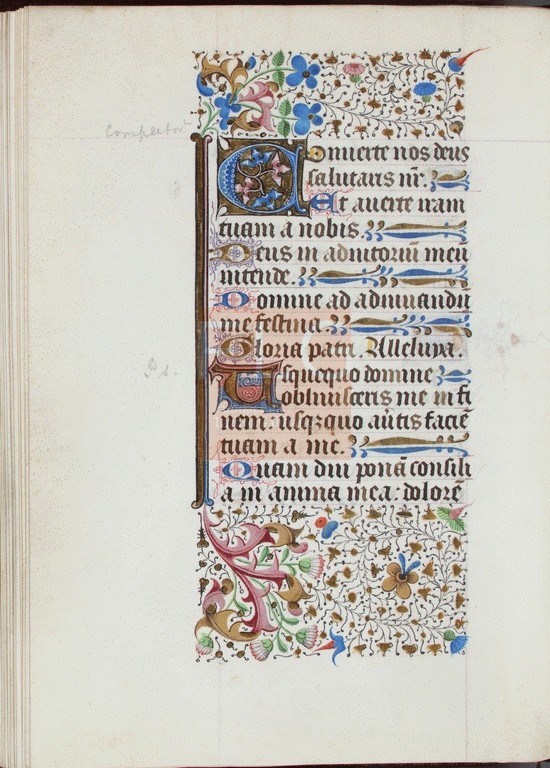 Completor
Conuerte nos deus
salutaris nr̄.
Et auerte iram
tuam a nobis.
Deus in adiutoriū meū
intende.
Domine ad adiuuandū
me festina.
Gloria patri. Alleluya.
Ps.
Usquequo domine
obliuisceris me in fi
nem: usq;quo au̅tis facie̅
tuam a me.
Quam diu pona̅ consili
a in anima mea: dolore̅